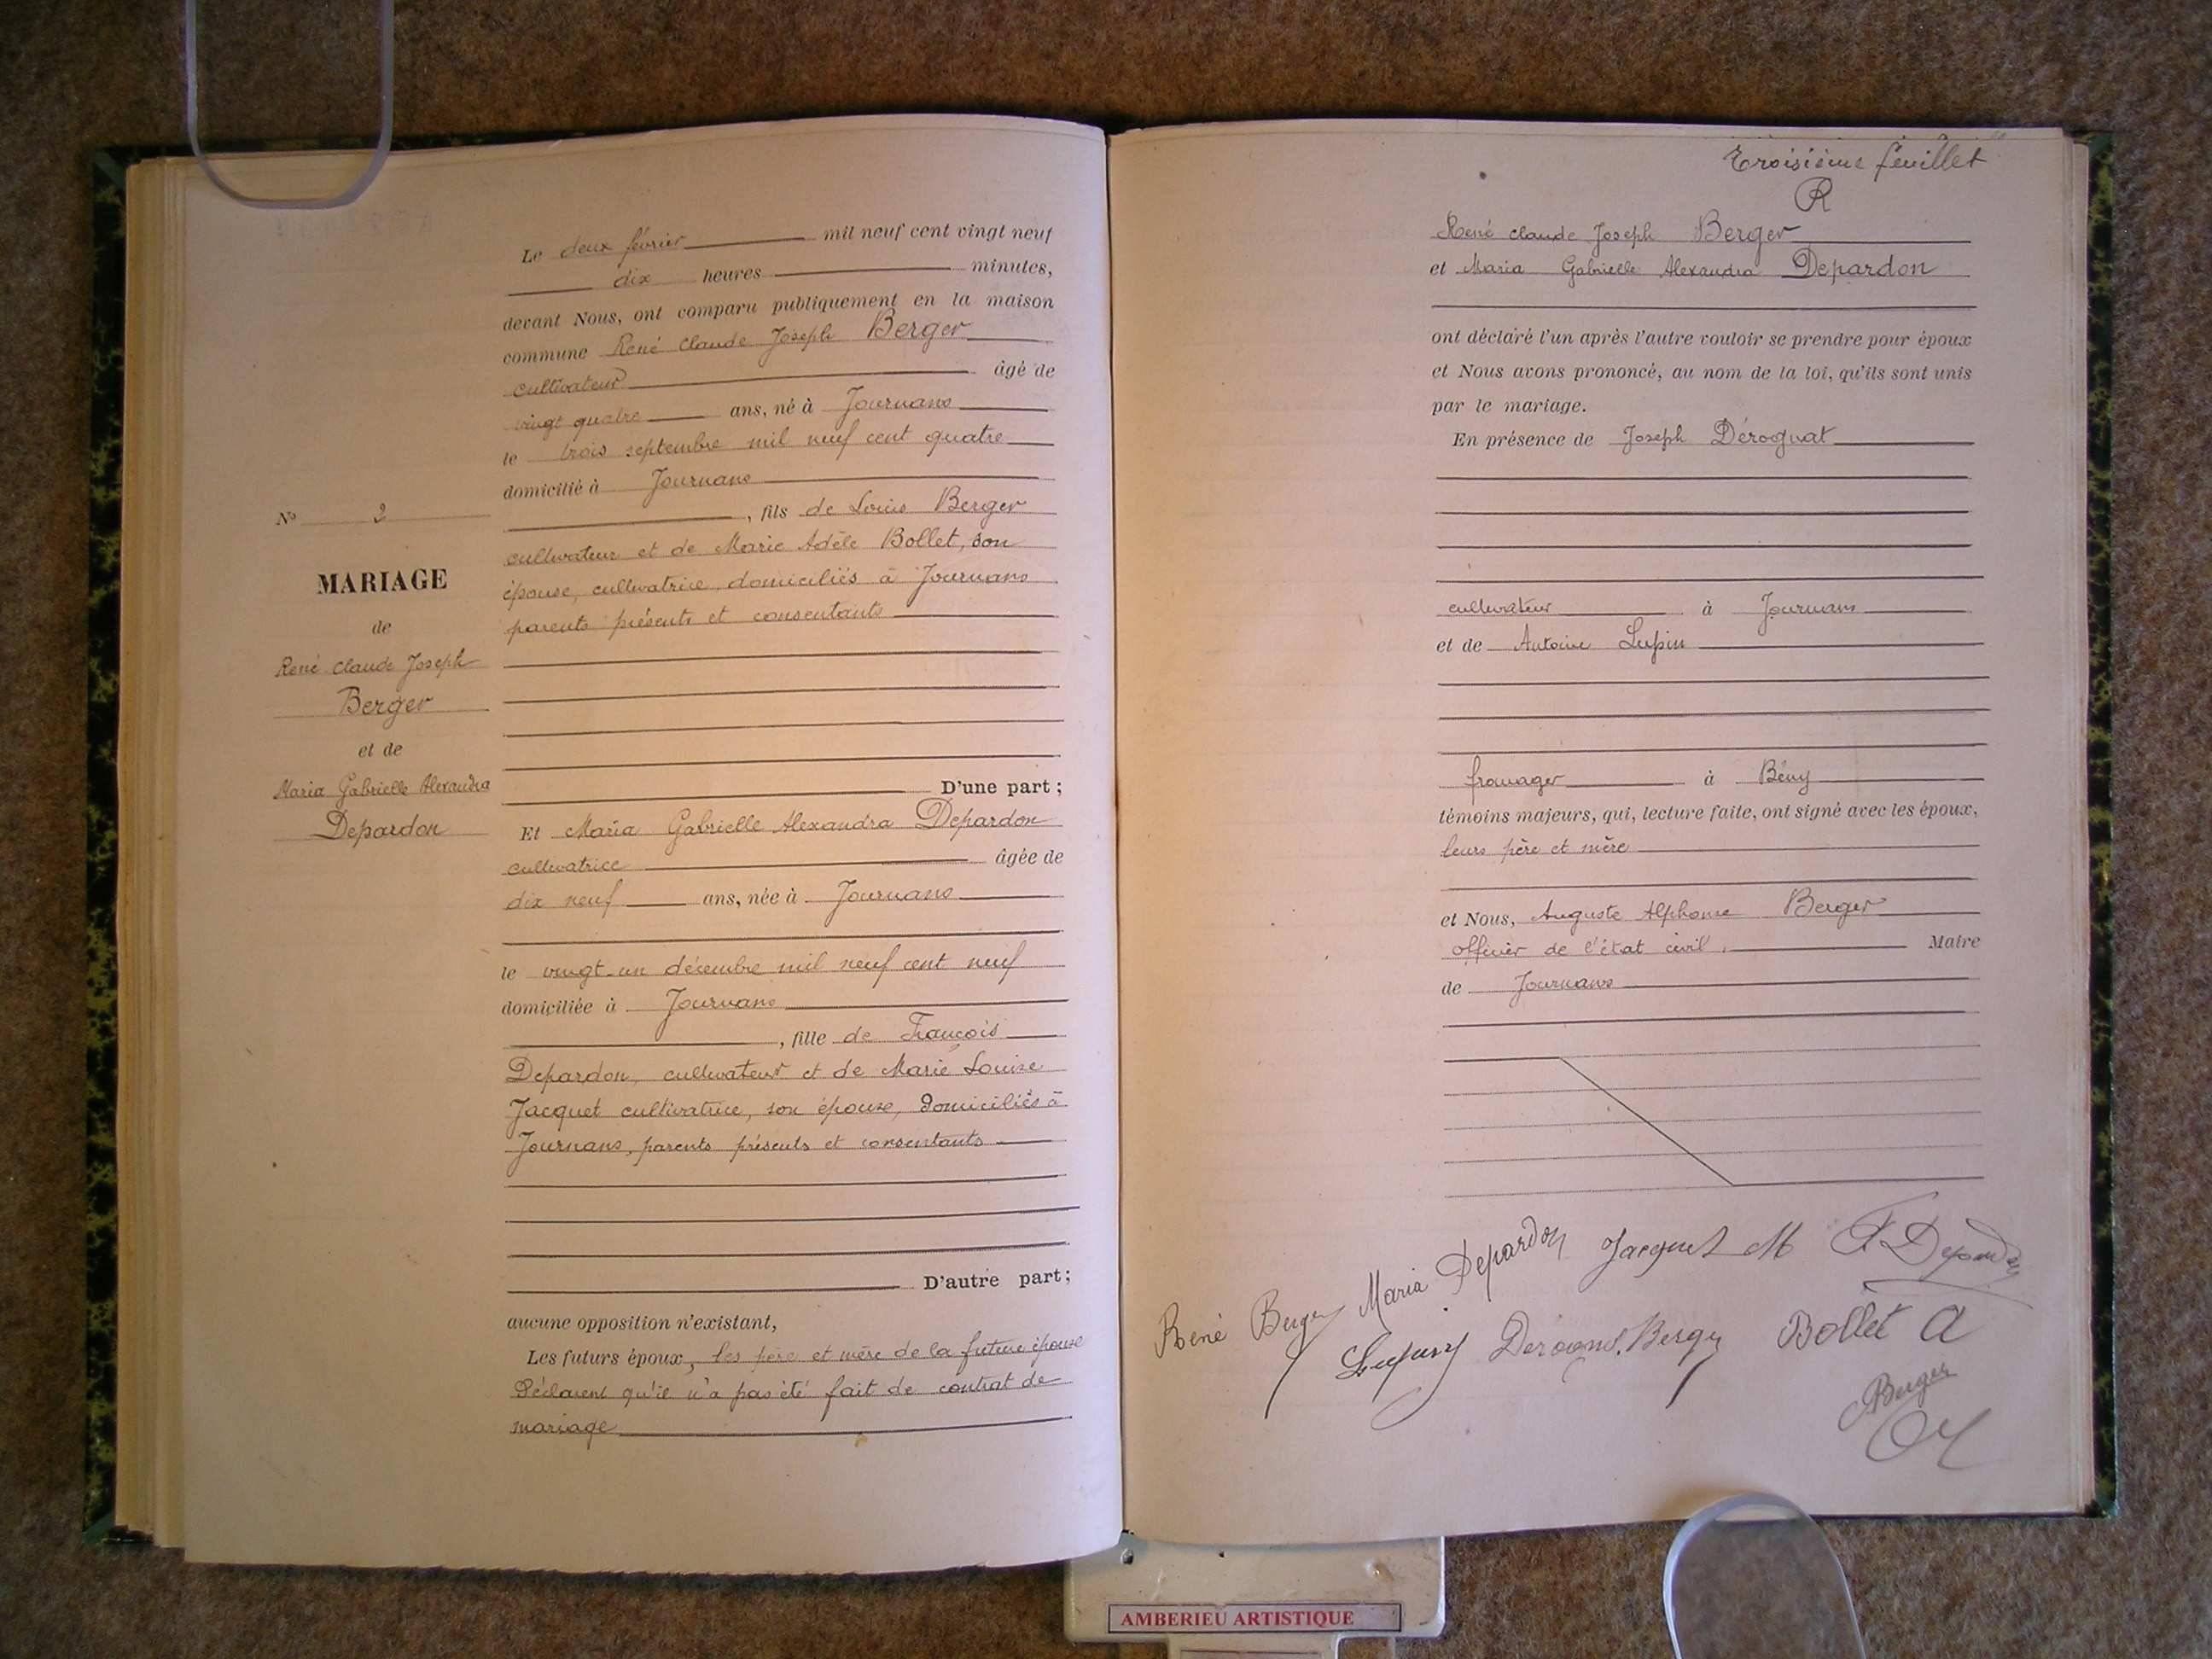 Le deux février mil neuf cent vingt neuf
dix heures minutes,
devant Nous, ont comparu publiquement en la maison
commune René Claude Joseph Berger
cultivateur âgé de
vingt quatre ans, né à Journans
le trois septembre mil neuf cent quatre
domicilié à Journans
, fils de Louis Berger
cultivateur et de Marie Adèle Bollet, son
épouse, cultivatrice, domiciliés à Journans
parents présents et consentants
D'une part;
Et Maria Gabrielle Alexandra Depardon
cultivatrice âgée de
dix neuf ans, née à Journans
le vingt-un décembre mil neuf cent neuf
domiciliée à Journans
, fille de François
Depardon, cultivateur et de Marie Louise
Jacquet cultivatrice, son épouse, domiciliés à
Journans, parents présents et consentants
D'autre part;
aucune opposition n'existant,
Les futurs époux, les père et mère de la future épouse
Déclarent qu'il n'a pas été fait de contrat de
mariage
N° 2
MARIAGE
de
René Claude Joseph
Berger
et de
Maria Gabrielle Alexandra
Depardon
Troisième feuillet
R
René Claude Joseph Berger
et Maria Gabrielle Alexandra Depardon
ont déclaré l'un après l'autre vouloir se prendre pour époux
et Nous avons prononcé, au nom de la loi, qu'ils sont unis
par le mariage.
En présence de Joseph Dérognat
cultivateur à Journans
et de Antoine Lupin
fromager à Bény
témoins majeurs, qui, lecture faite, ont signé avec les époux,
leurs père et mère
et Nous, Auguste Alphonse Berger
officier de l'état civil, Maire
de Journans
René Berger Maria Depardon Jacquet M F Depardon
Berger Bollet A
Berger
AMBERIEU ARTISTIQUE